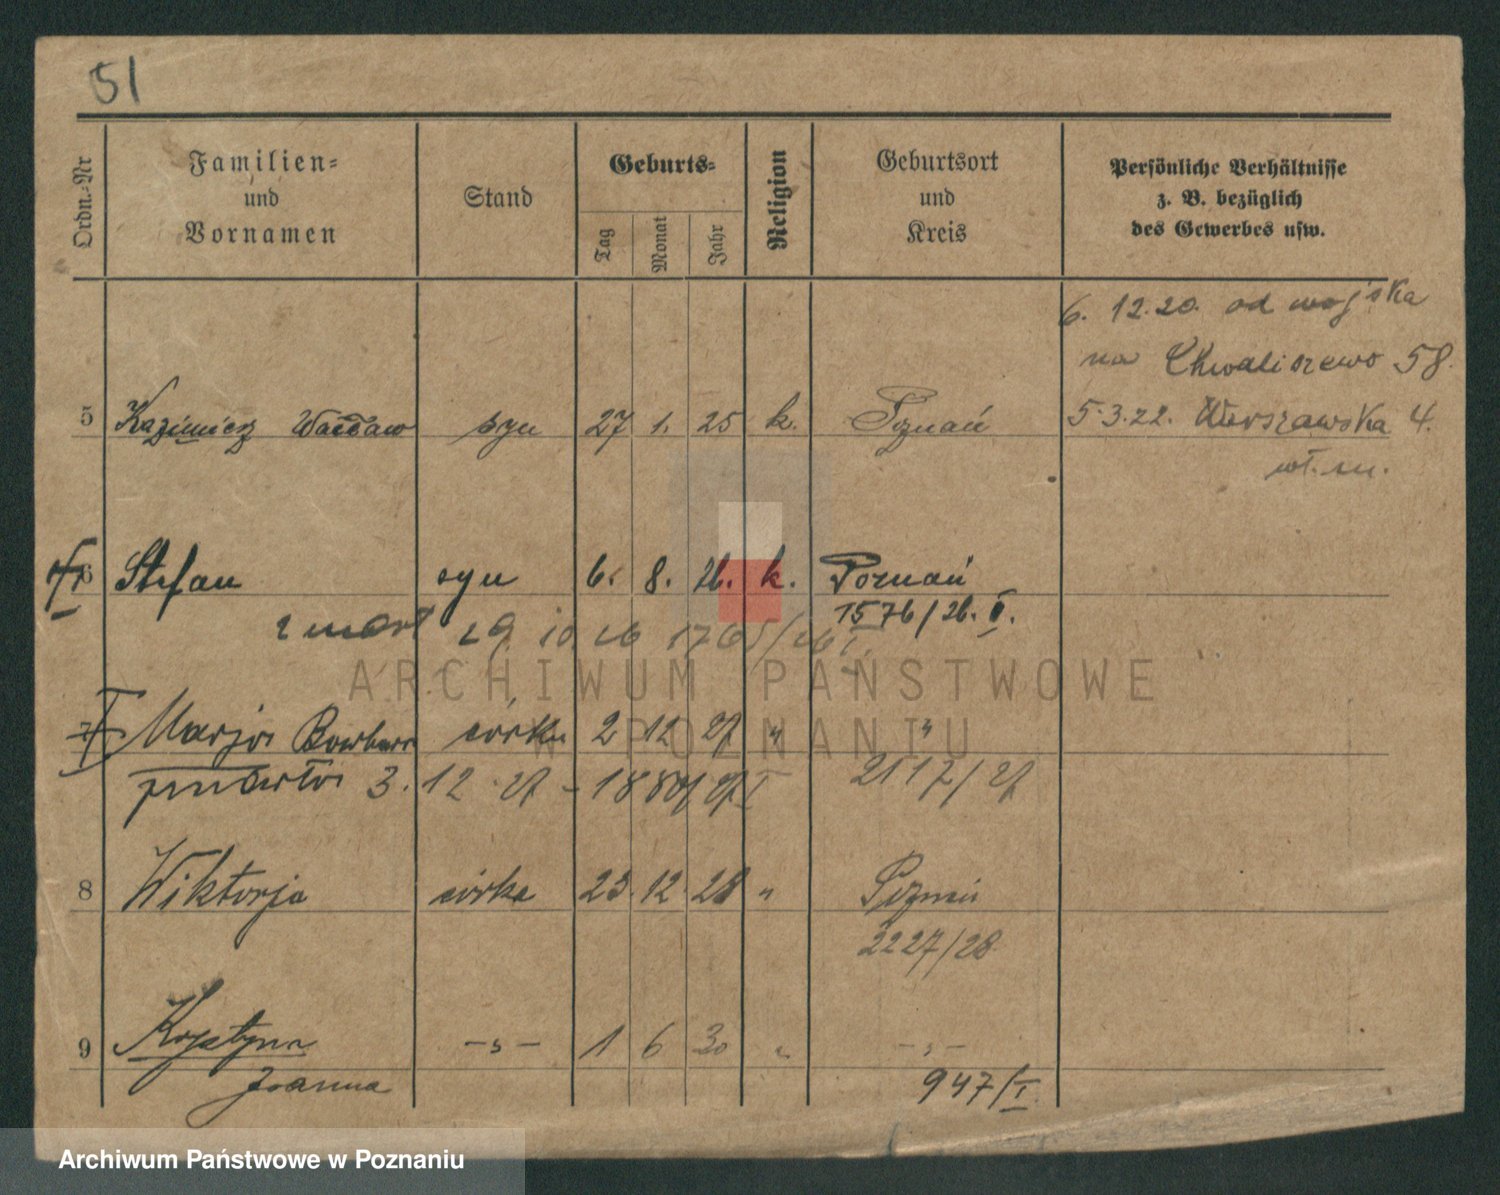 51
Ordn.-Nr
Familien- und Vornamen
Stand
Geburts-
Tag
Monat
Jahr
Religion
Geburtsort und Kreis
Persönliche Verhältnisse
z. B. bezüglich
des Gewerbes usw.
6. 12.20. od wojska
na Chwaliszewo 58.
5 Kazimierz Wacław syn 27 1. 25 k. Poznań
5.3.22. Warszawska 4.
wł. m.
6 Stefan syn 6. 8. 26. k. Poznań
1576/26. II.
zmarł 29. 10. 26 1765/26 I
7 Marja Barbara córka 2 12 27 " "
zmarła 3. 12. 27 - 1889/27 I 2117/27
8 Wiktorja córka 23. 12. 28 " Poznań
2227/28
9 Krystyna -"- 1 6 30 " -"-
Joanna
947/I
ARCHIWUM PAŃSTWOWE
W POZNANIU
Archiwum Państwowe w Poznaniu